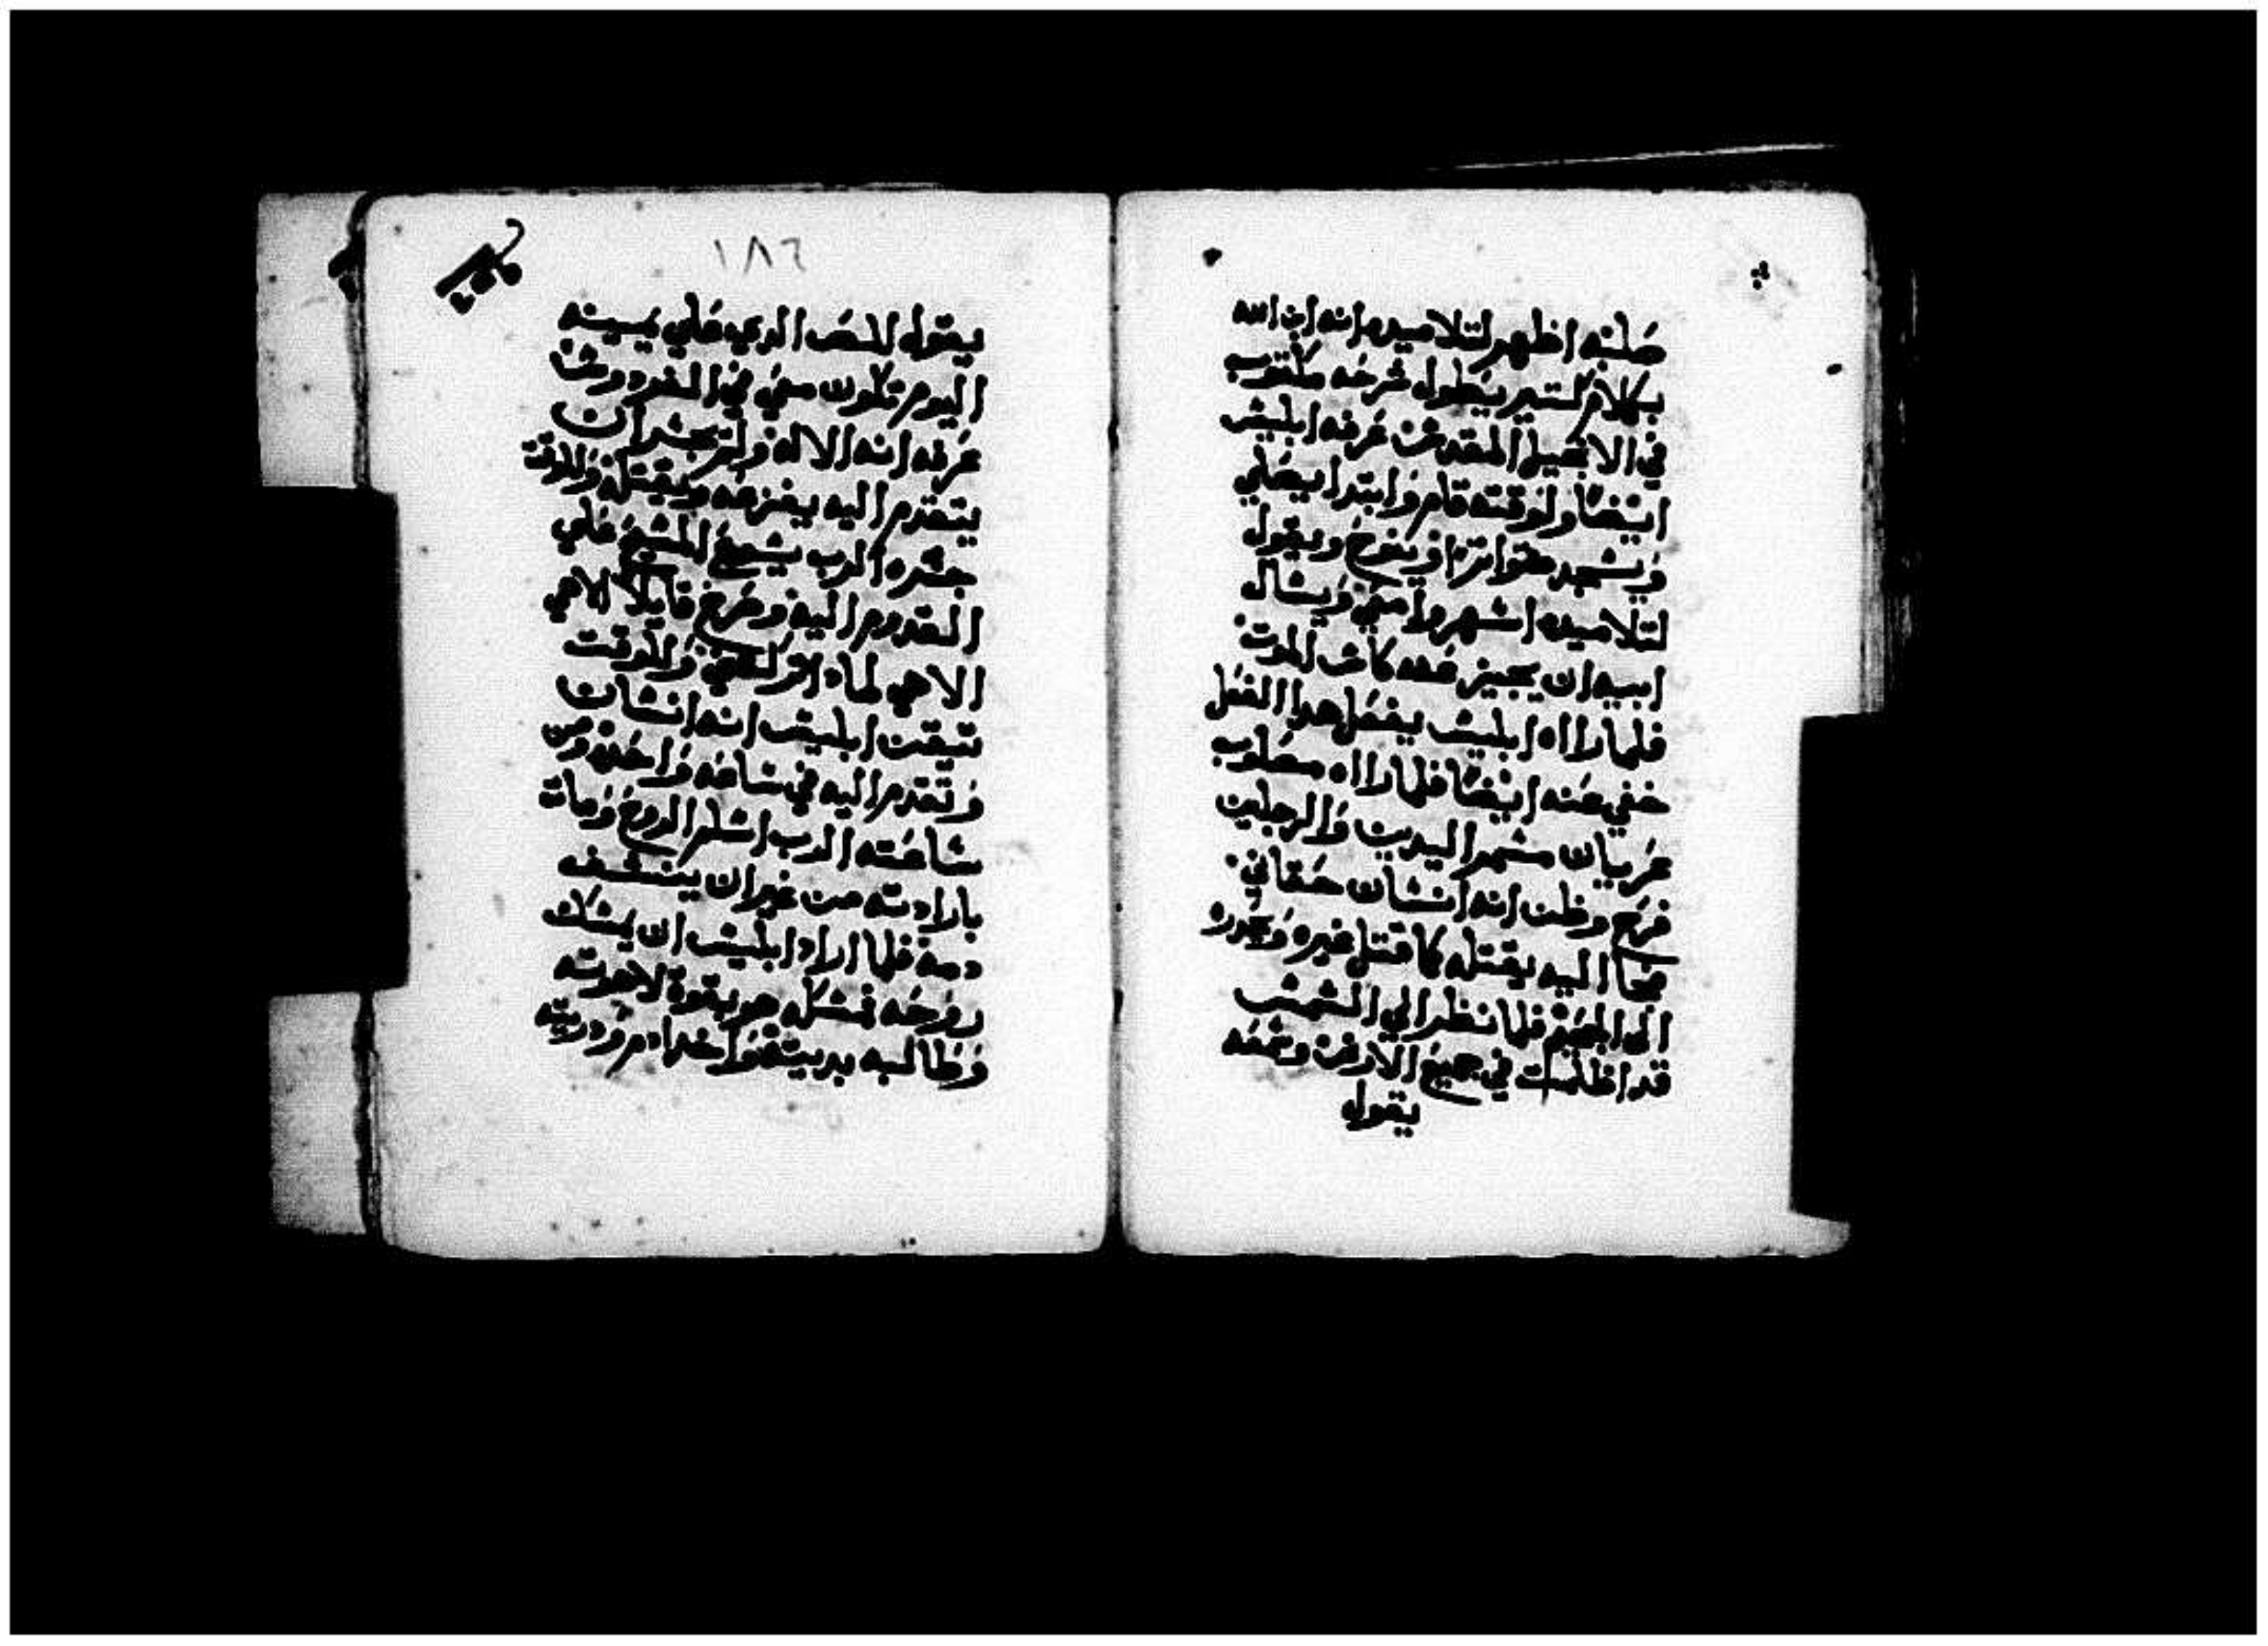 صلبه اظهر لتلاميده انه ابن الله
بكلام كتير يطول شرحه مكتوب
في الانجيل المقدس عرفه ابليس
ايضا ولوقته قام وابتدا يصلي
ويسجد متواترا وينوح ويقول
لتلاميده اسهروا معي ويسال
ابيه ان يجيز عنه كاس الموت
فلما راه ابليس يفعل هدا الفعل
خفي عنه ايضا فلما راه مصلوب
عريان مسمر اليدين والرجلين
فرح وظن انه انسان حقاني
فجا اليه يقتله كما قتل غيره ويحدره
الى الجحيم فلما نظر الي الشمس
قد اظلمت في جميع الارض وسمعه
يقول
١٨٦
يقول للص الدي علي يمينه
اليوم تكون معي في الفردوس
عرفه انه الاله ولم يجسر ان
يتقدم اليه يفزعه ويقتله وللوقت
جسره الرب يسوع المسيح علي
القدوم اليه وصرخ قايلا الاهي
الاهي لمادا تركتني وللوقت
تيقن ابليس انه انسان
وتقدم اليه في ساعه واحده ومن
ساعته الرب اسلم الروح ومات
بارادته من غير ان ينسفه
دمه فلما اراد ابليس ان يمسك
روحه فمسكه هو بقوة لاهوته
وطالبه بديته واخد ادم ودريته